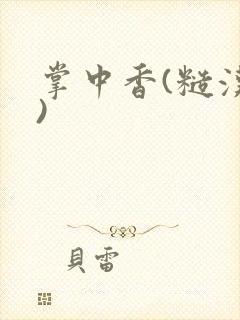 掌中香(糙汉
)
貝雷